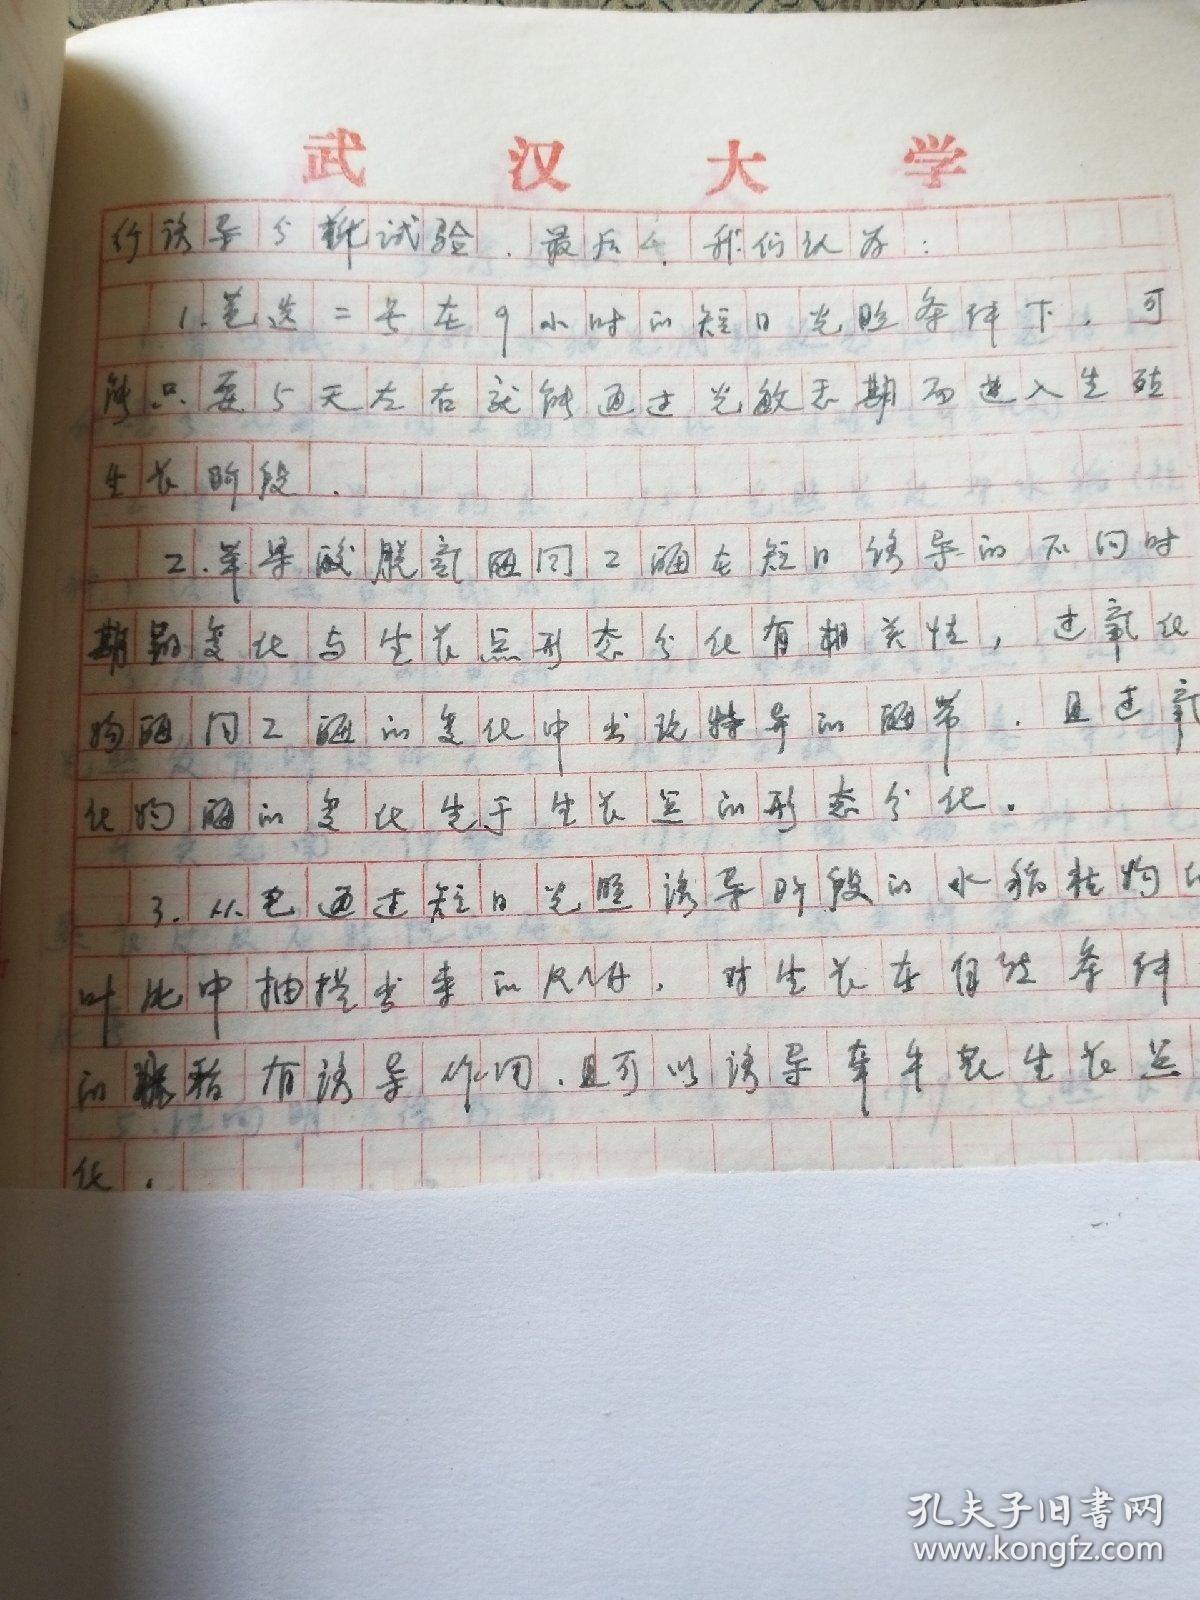 武汉大学
行诱导分析试验.最后,我们认为:
1.笔选二号在9小时的短日光照条件下.可
能只要5天左右就能通过光敏感期而进入生殖
生长阶段.
2.苹果酸脱氢酶同工酶在短日诱导的不同时
期的变化与生长点形态分化有相关性,过氧化
物酶同工酶的变化中出现特异的酶带.且过氧
化物酶的变化先于生长点的形态分化.
3.从已通过短日光照诱导阶段的水稻植物
叶片中抽提出来的RNA.对生长在自然条件
的 稻有诱导作用.且可以诱导牵牛花生长点
化.
孔夫子旧书网
www.kongfz.com